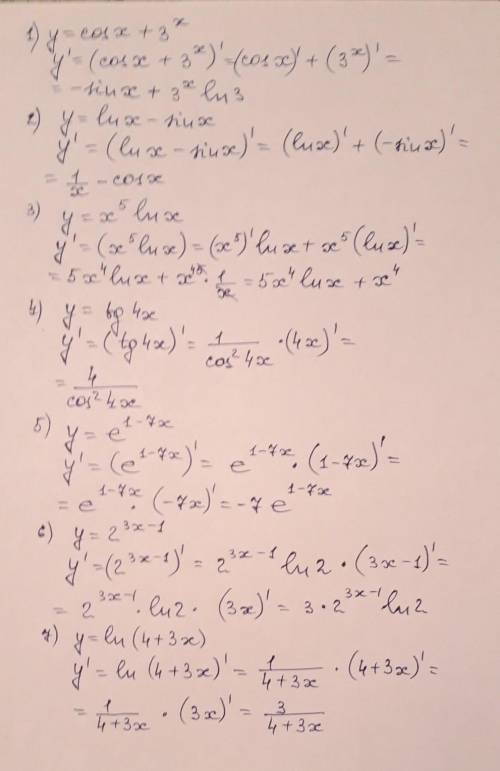 1) y = cosx + 3^x
y' = (cosx + 3^x)' = (cosx)' + (3^x)' =
= -sinx + 3^x ln3
2) y = lnx - sinx
y' = (lnx - sinx)' = (lnx)' + (-sinx)' =
= 1/x - cosx
3) y = x^5 lnx
y' = (x^5 lnx) = (x^5)' lnx + x^5 (lnx)' =
= 5x^4 lnx + x^45 · 1/x = 5x^4 lnx + x^4
4) y = tg 4x
y' = (tg4x)' = 1/cos²4x · (4x)' =
= 4/cos²4x
5) y = e^(1-7x)
y' = (e^(1-7x))' = e^(1-7x) · (1-7x)' =
= e^(1-7x) · (-7x)' = -7e^(1-7x)
6) y = 2^(3x-1)
y' = (2^(3x-1))' = 2^(3x-1) ln2 · (3x-1)' =
= 2^(3x-1) · ln2 · (3x)' = 3 · 2^(3x-1) ln2
7) y = ln(4+3x)
y' = ln(4+3x)' = 1/(4+3x) · (4+3x)' =
= 1/(4+3x) · (3x)' = 3/(4+3x)